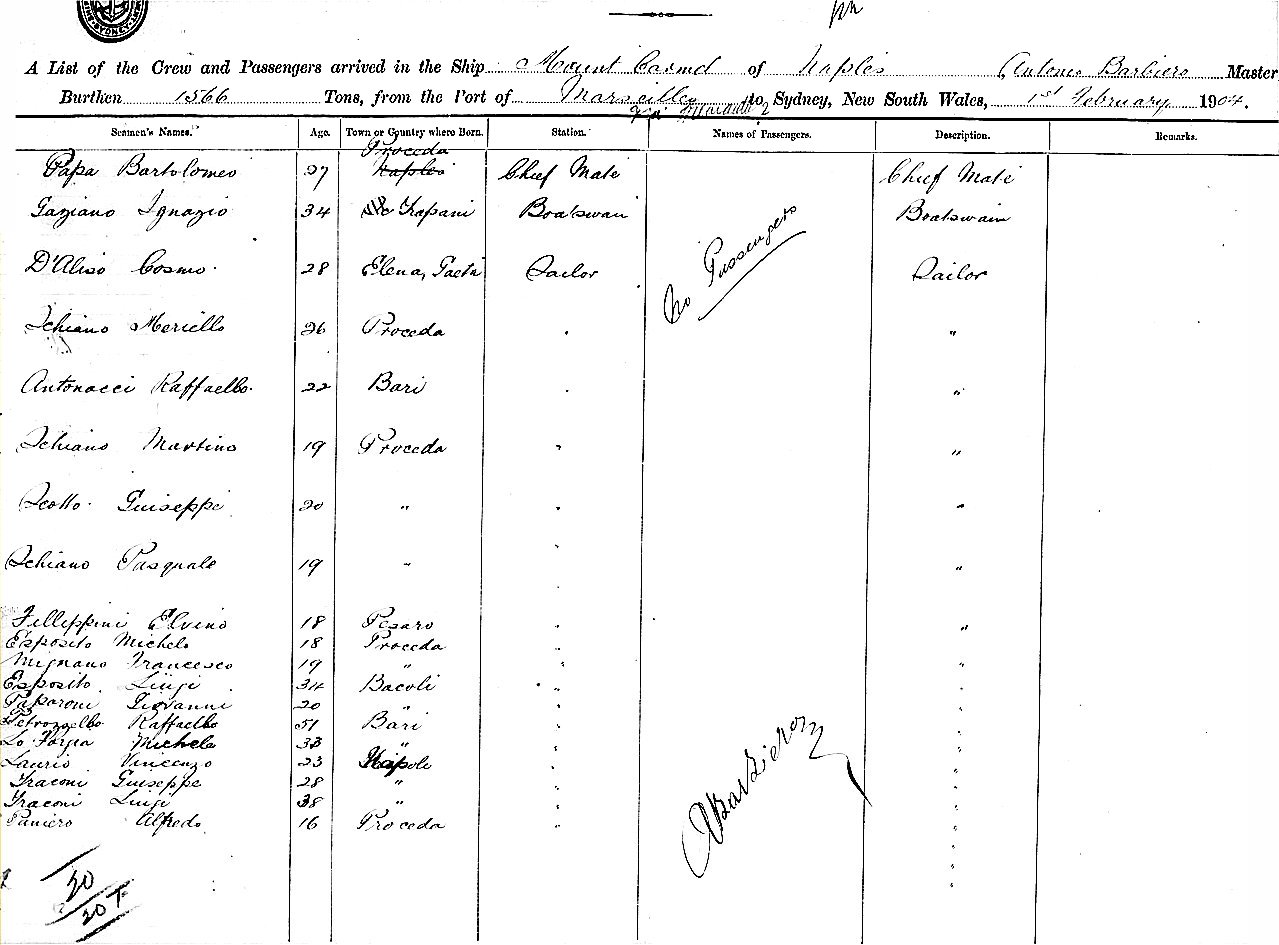 SYDNEY
A List of the Crew and Passengers arrived in the Ship Mount Carmel of Naples Antonio Barbiero Master
Burthen 1566 Tons, from the Port of Marseilles to Sydney, New South Wales, 1st February 1904.
Seamen's Names. Age. Town or Country where Born. Station. Names of Passengers. Description. Remarks.
Proceda
Papa Bartolomeo 27 Naples Chief Mate Chief Mate
Gaziano Ignazio 34 Trapani Boatswain Boatswain
No Passengers
D'Aliso Cosmo 28 Elena, Gaeta Sailor Sailor
Schiano Meriello 26 Proceda "
Antonacci Raffaello 22 Bari "
Schiano Martino 19 Proceda "
Scotto Guiseppe 20 " "
Schiano Pasquale 19 " "
Fillippini Elvino 18 Pesaro "
Esposito Michele 18 Proceda
Mignano Francesco 19 "
Esposito Luigi 34 Bacoli
Paparoni Giovanni 20 "
Petrozzello Raffaello 51 Bari
Lo Forgia Michele 33 "
Laurio Vincenzo 23 Napoli
Traconi Guiseppe 28 "
Traconi Luigi 38 "
Paniero Alfredo 16 Proceda
ABarbiero
20
20 T